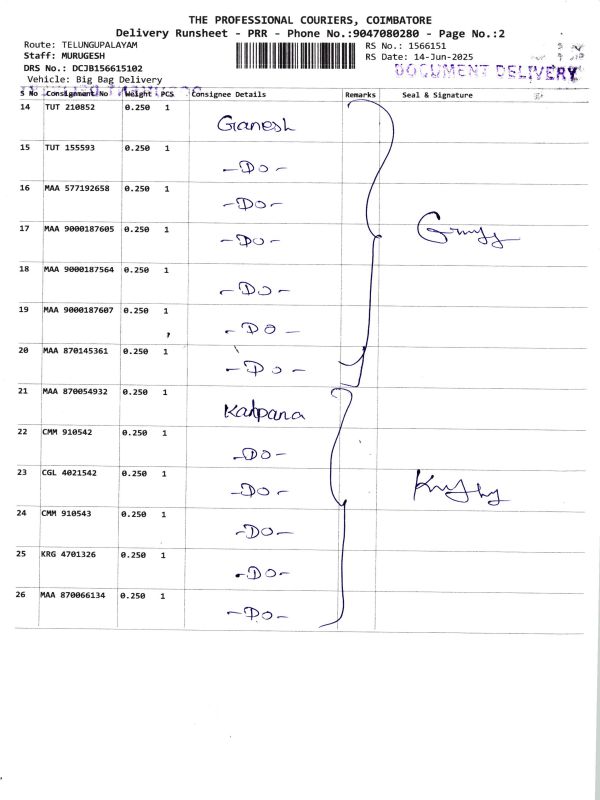 THE PROFESSIONAL COURIERS, COIMBATORE
Delivery Runsheet - PRR - Phone No.:9047080280 - Page No.:2
Route: TELUNGUPALAYAM
RS No.: 1566151
Staff: MURUGESH
RS Date: 14-Jun-2025
DRS No.: DCJB156615102
DOCUMENT DELIVERY
Vehicle: Big Bag Delivery
S No Consignment No Weight PCS Consignee Details Remarks Seal & Signature
14 TUT 210852 0.250 1 Ganesh
15 TUT 155593 0.250 1 -Do-
16 MAA 577192658 0.250 1 -Do-
17 MAA 9000187605 0.250 1 -Do-
18 MAA 9000187564 0.250 1 -Do-
19 MAA 9000187607 0.250 1 -Do-
20 MAA 870145361 0.250 1 -Do-
21 MAA 870054932 0.250 1 Kalpana
22 CMM 910542 0.250 1 -Do-
23 CGL 4021542 0.250 1 -Do-
24 CMM 910543 0.250 1 -Do-
25 KRG 4701326 0.250 1 -Do-
26 MAA 870066134 0.250 1 -Do-